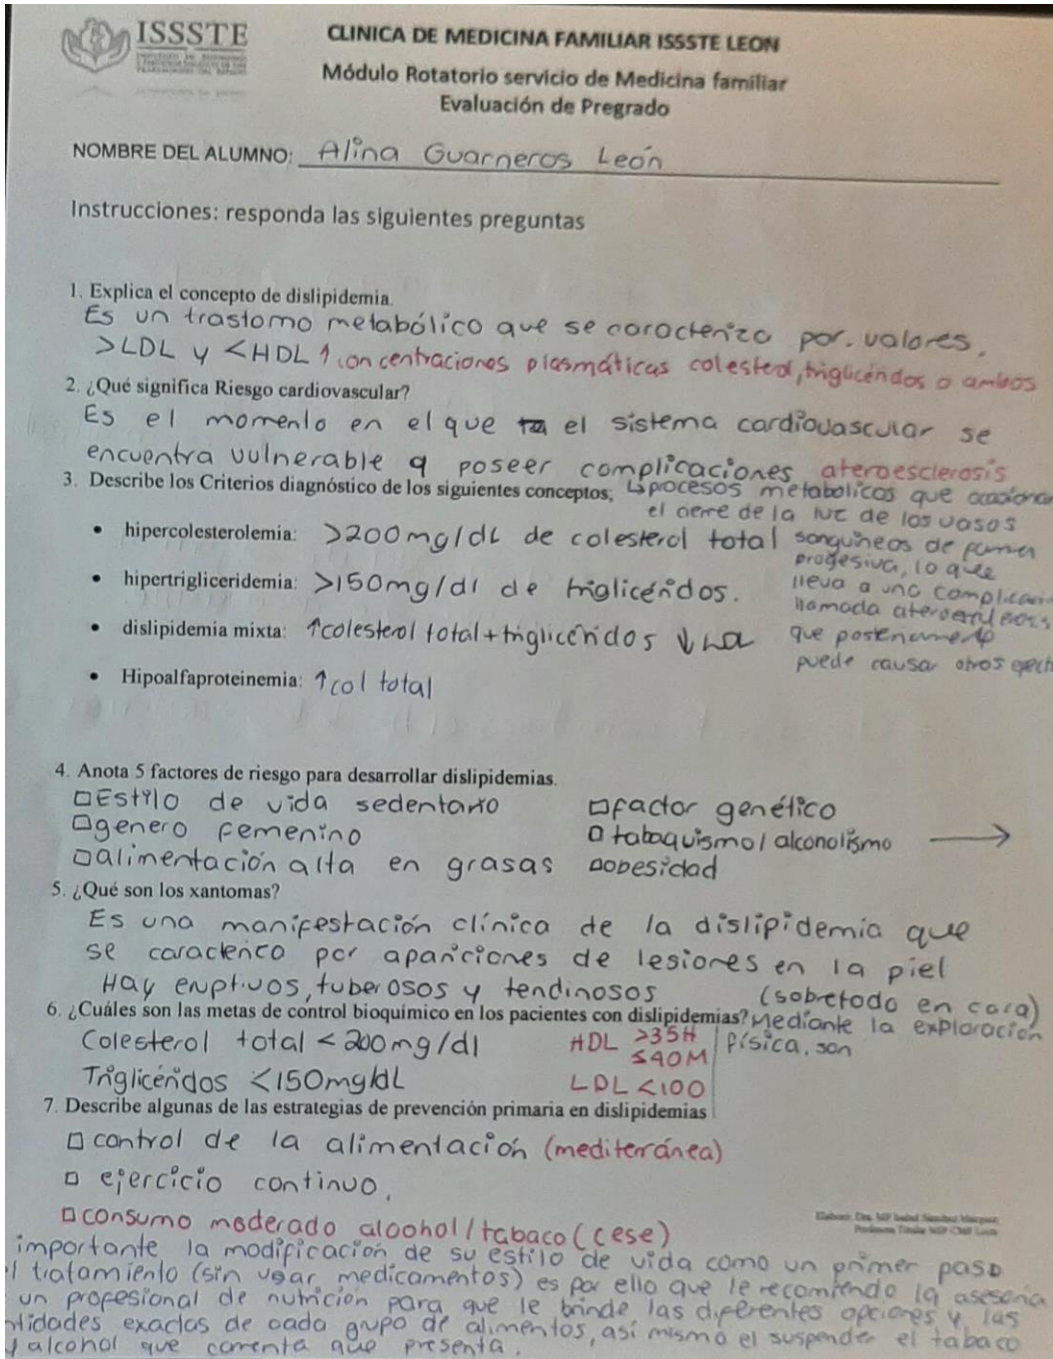 ISSSTE
CLINICA DE MEDICINA FAMILIAR ISSSTE LEON
Módulo Rotatorio servicio de Medicina familiar
Evaluación de Pregrado
NOMBRE DEL ALUMNO: Alina Guarneros León
Instrucciones: responda las siguientes preguntas
1. Explica el concepto de dislipidemia.
Es un trastorno metabólico que se caracteriza por. valores.
>LDL y <HDL ↑ concentraciones plasmáticas colesterol, triglicéridos o ambos
2. ¿Qué significa Riesgo cardiovascular?
Es el momento en el que el sistema cardiovascular se
encuentra vulnerable a poseer complicaciones ateroesclerosis
3. Describe los Criterios diagnóstico de los siguientes conceptos;
↳procesos metabolicos que
el cierre de la luz de los vasos
sanguíneos de forma
progesiva, lo que
lleva a una
llamada
que posteriormente
puede causar otros
• hipercolesterolemia: >200mg/dL de colesterol total
• hipertrigliceridemia: >150mg/dl de triglicéridos.
• dislipidemia mixta: ↑colesterol total+triglicéridos ↓
• Hipoalfaproteinemia: ↑col total
4. Anota 5 factores de riesgo para desarrollar dislipidemias.
□Estilo de vida sedentario □factor genético
□genero femenino □tabaquismo/alcoholismo →
□alimentación alta en grasas □obesidad
5. ¿Qué son los xantomas?
Es una manifestación clínica de la dislipidemia que
se por apariciones de lesiones en la piel
Hay eruptivos, tuberosos y tendinosos (sobretodo en cara)
6. ¿Cuáles son las metas de control bioquímico en los pacientes con dislipidemias? Mediante la exploración
física, son
Colesterol total <200mg/dl HDL >35H
≤40M
Triglicéridos <150mg/dL LDL <100
7. Describe algunas de las estrategias de prevención primaria en dislipidemias
□control de la alimentación (mediterránea)
□ ejercicio continuo.
□consumo moderado alcohol/tabaco (cese)
importante la modificación de su estilo de vida como un primer paso
tratamiento (sin usar medicamentos) es por ello que le recomiendo la asesoria
un profesional de nutrición para que le brinde las diferentes opciones y las
exactas de cada grupo de alimentos, así mismo el suspender el tabaco
y alcohol que comenta que presenta.